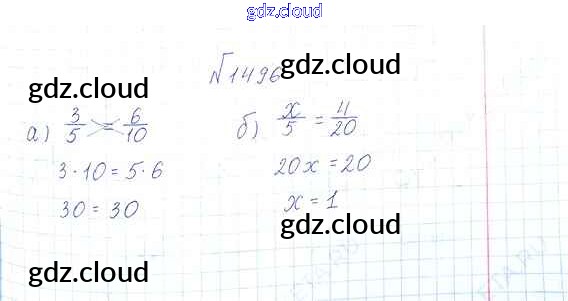 gdz.cloud
№1496
gdz.cloud gdz.cloud
а) 3/5 = 6/10 б) x/5 = 4/20
3·10 = 5·6 20x = 20
30 = 30 x = 1
gdz.cloud
gdz.cloud